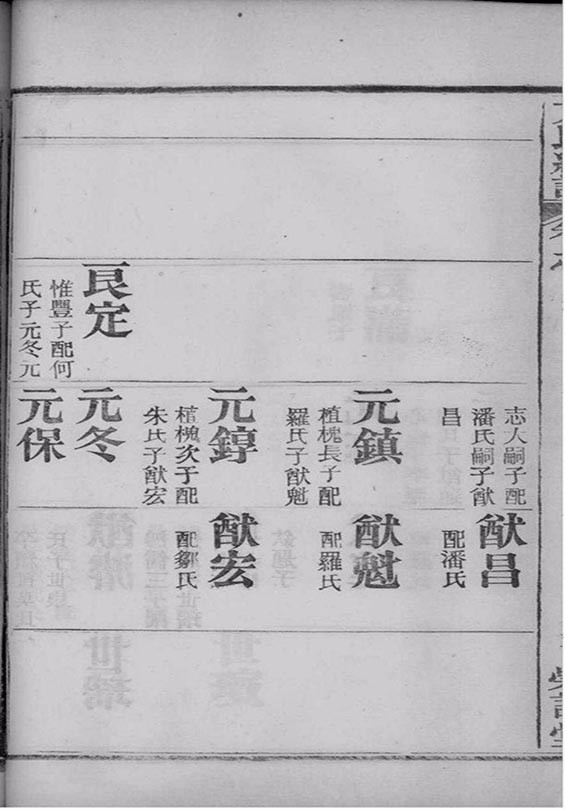 良定
惟豐子配何
氏子元冬元
志大嗣子配
潘氏嗣子猷
昌
元鎮
植槐長子配
羅氏子猷魁
元錞
植槐次子配
朱氏子猷宏
元冬
元保
猷昌
配潘氏
猷魁
配羅氏
猷宏
配鄒氏